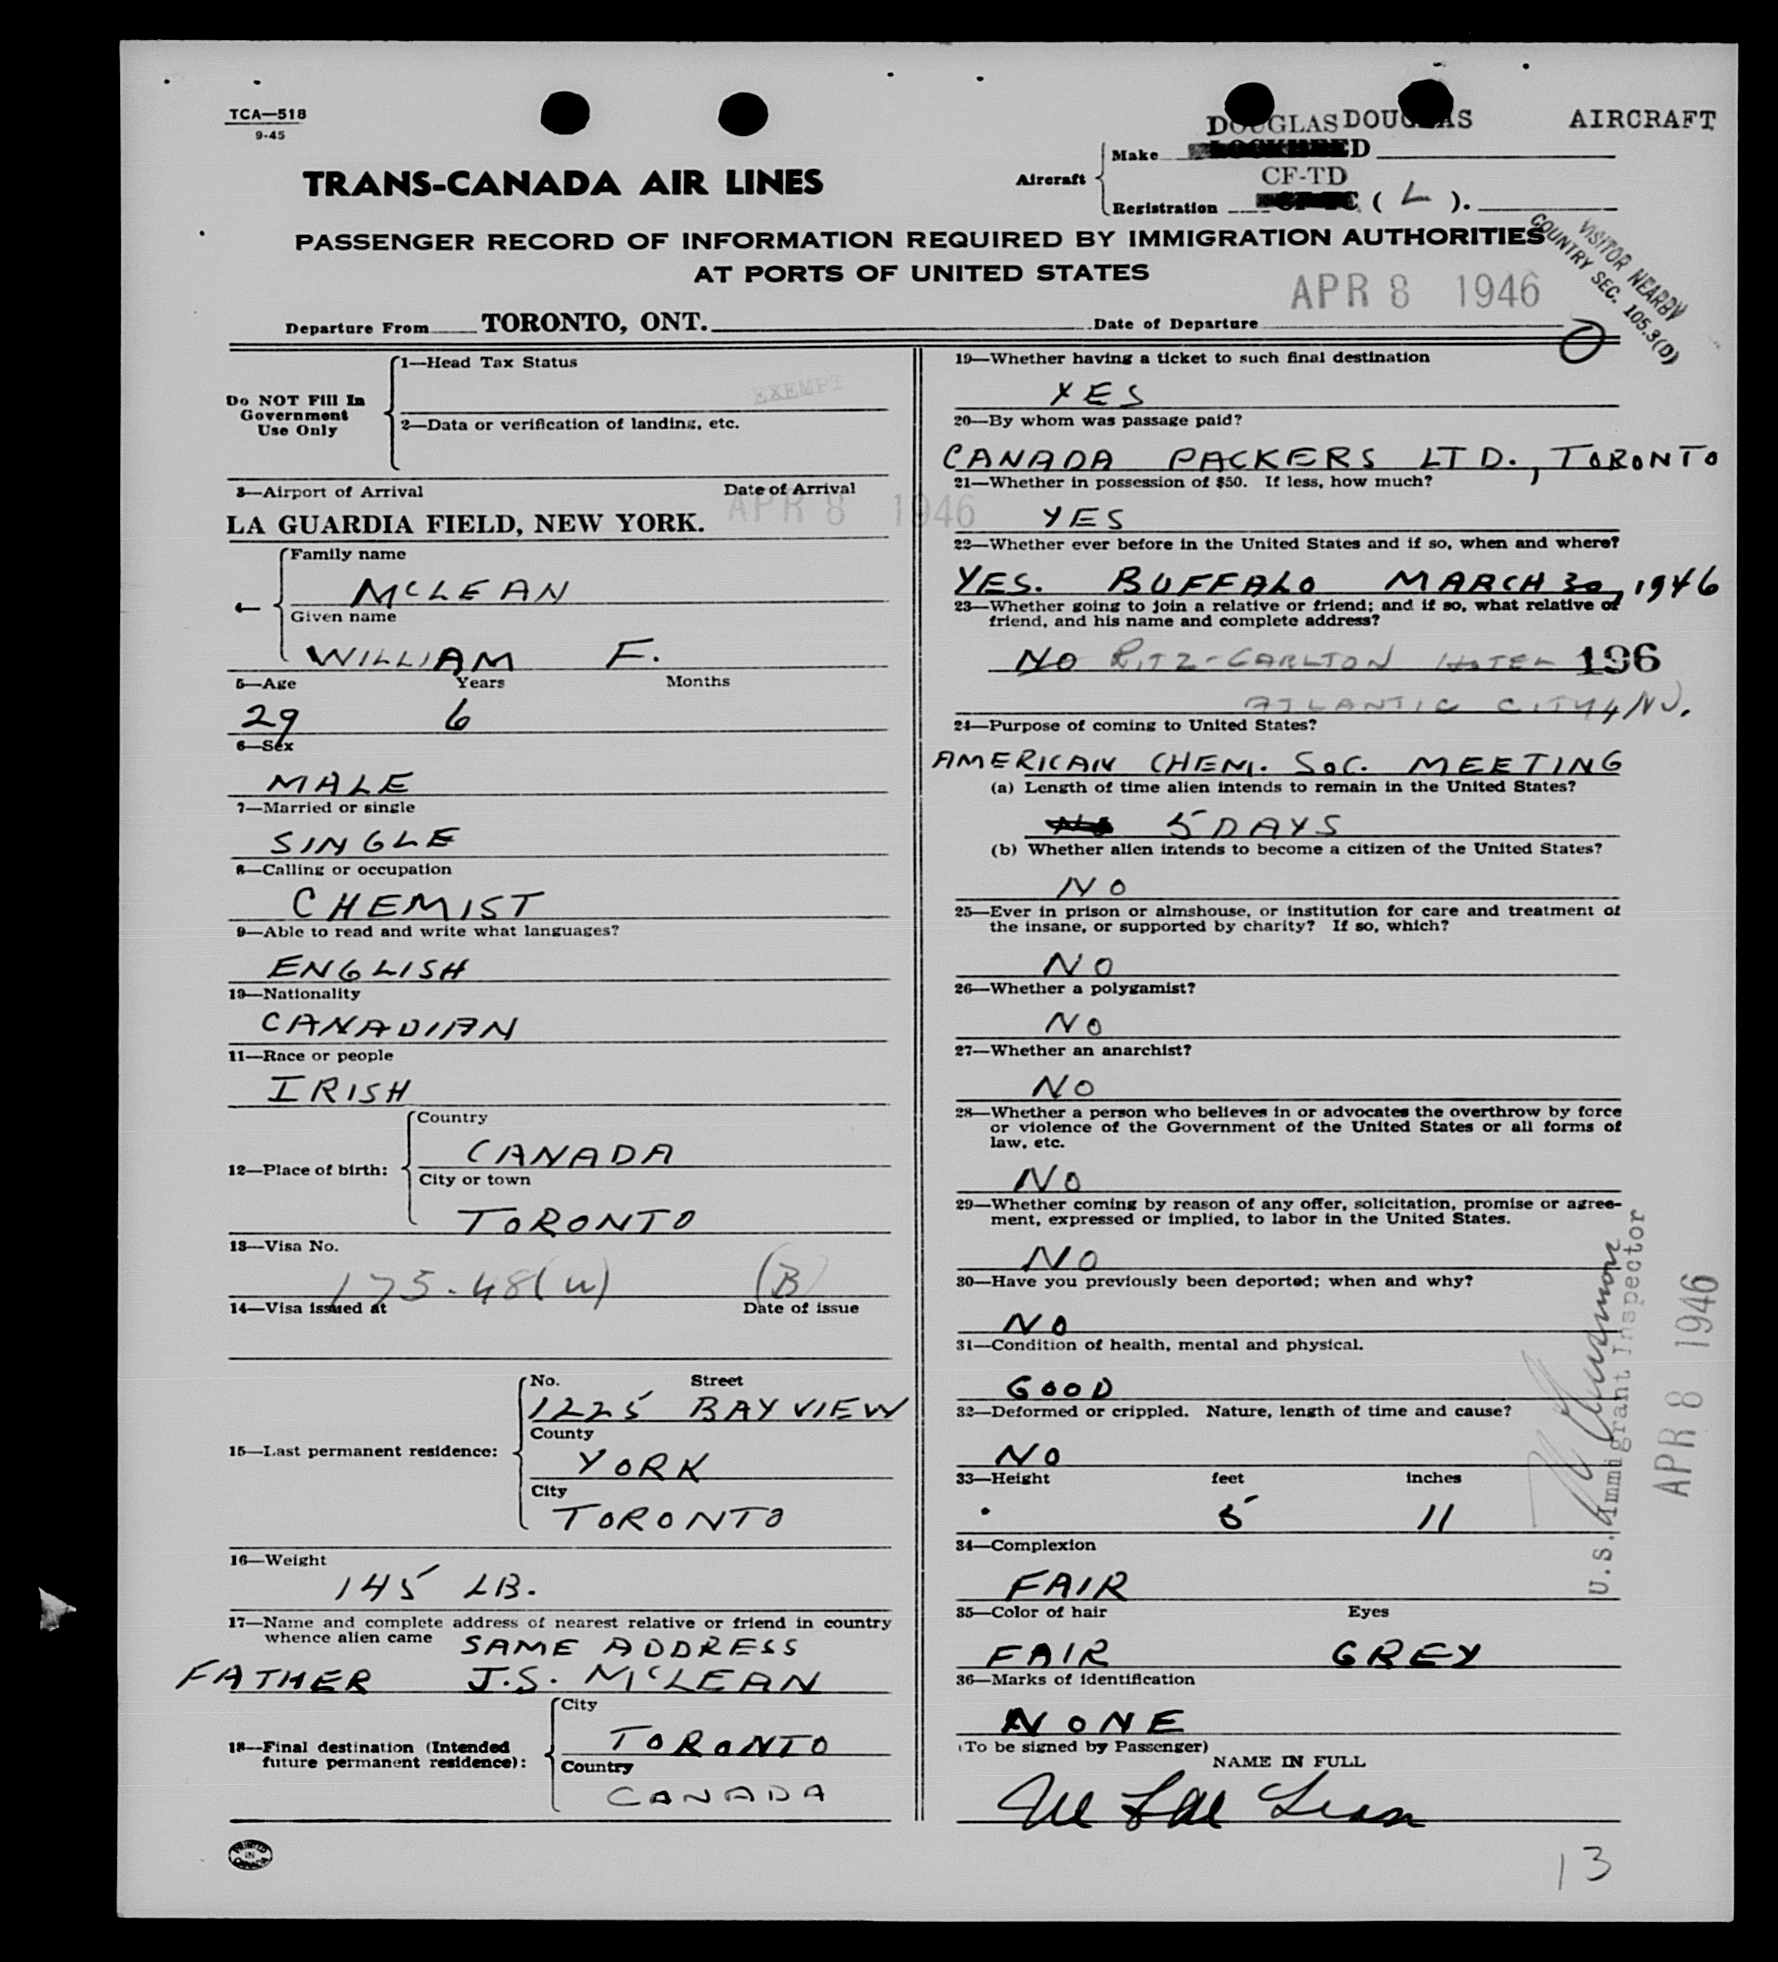 TCA—518
9-45
DOUGLAS DOUGLAS AIRCRAFT
TRANS-CANADA AIR LINES
Aircraft
Make LOCKHEED
CF-TD
Registration CF-TC ( L ).
PASSENGER RECORD OF INFORMATION REQUIRED BY IMMIGRATION AUTHORITIES
AT PORTS OF UNITED STATES
VISITOR NEARBY
COUNTRY SEC. 105.3(D)
APR 8 1946
Departure From TORONTO, ONT. Date of Departure
Do NOT Fill In
Government
Use Only
1—Head Tax Status
EXEMPT
2—Data or verification of landing, etc.
3—Airport of Arrival Date of Arrival
LA GUARDIA FIELD, NEW YORK. APR 8 1946
4—
Family name
McLEAN
Given name
WILLIAM F.
5—Age Years Months
29 6
6—Sex
MALE
7—Married or single
SINGLE
8—Calling or occupation
CHEMIST
9—Able to read and write what languages?
ENGLISH
10—Nationality
CANADIAN
11—Race or people
IRISH
12—Place of birth:
Country
CANADA
City or town
TORONTO
13—Visa No.
175.48(W) (B)
14—Visa issued at Date of issue
15—Last permanent residence:
No. Street
1225 BAYVIEW
County
YORK
City
TORONTO
16—Weight
145 LB.
17—Name and complete address of nearest relative or friend in country
whence alien came SAME ADDRESS
FATHER J.S. McLEAN
18—Final destination (Intended
future permanent residence):
City
TORONTO
Country
CANADA
19—Whether having a ticket to such final destination
YES
20—By whom was passage paid?
CANADA PACKERS LTD., TORONTO
21—Whether in possession of $50. If less, how much?
YES
22—Whether ever before in the United States and if so, when and where?
YES. BUFFALO MARCH 30, 1946
23—Whether going to join a relative or friend; and if so, what relative or
friend, and his name and complete address?
NO RITZ-CARLTON HOTEL 196
ATLANTIC CITY, NJ.
24—Purpose of coming to United States?
AMERICAN CHEM. SOC. MEETING
(a) Length of time alien intends to remain in the United States?
5 DAYS
(b) Whether alien intends to become a citizen of the United States?
NO
25—Ever in prison or almshouse, or institution for care and treatment of
the insane, or supported by charity? If so, which?
NO
26—Whether a polygamist?
NO
27—Whether an anarchist?
NO
28—Whether a person who believes in or advocates the overthrow by force
or violence of the Government of the United States or all forms of
law, etc.
NO
29—Whether coming by reason of any offer, solicitation, promise or agree-
ment, expressed or implied, to labor in the United States.
NO
30—Have you previously been deported; when and why?
NO
31—Condition of health, mental and physical.
GOOD
32—Deformed or crippled. Nature, length of time and cause?
NO
33—Height feet inches
5 11
34—Complexion
FAIR
35—Color of hair Eyes
FAIR GREY
36—Marks of identification
NONE
(To be signed by Passenger)
NAME IN FULL
U.S. Immigrant Inspector
APR 8 1946
13